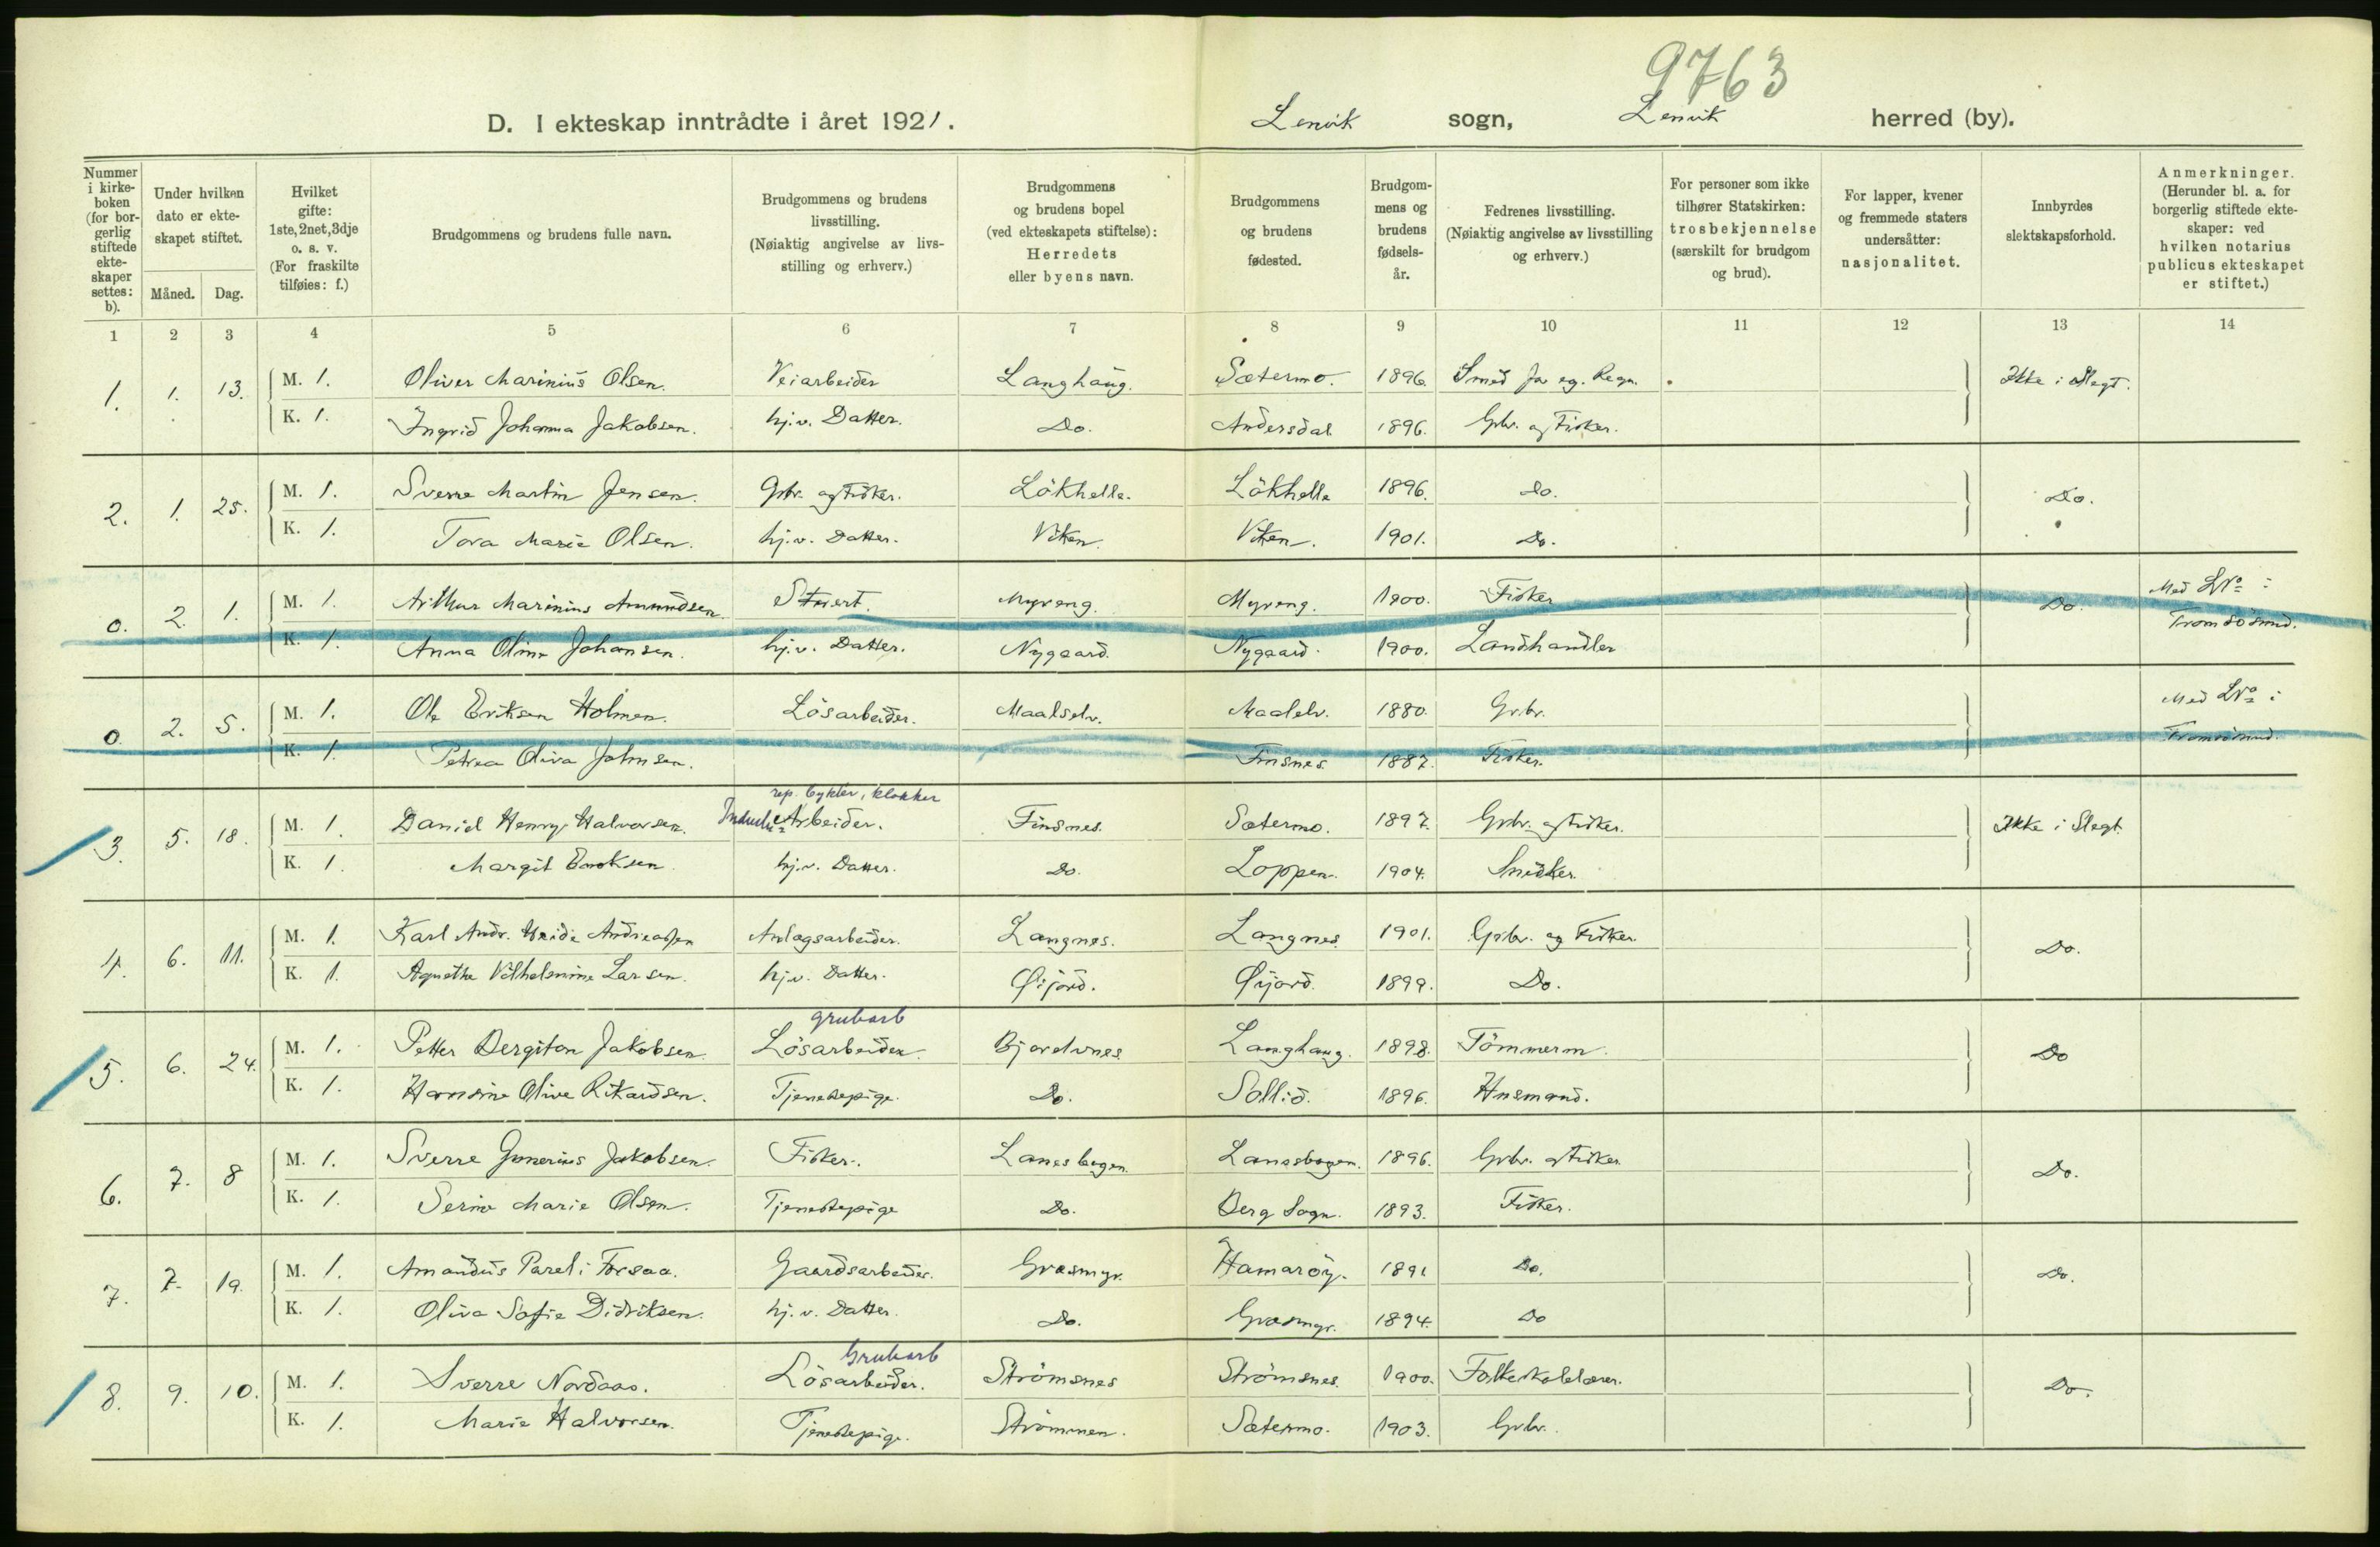 9763
D. I ekteskap inntrådte i året 1921. Lenvik sogn, Lenvik herred (by).
Nummer i kirke-boken (for bor-gerlig stiftede ekte-skaper settes: b).
Under hvilken dato er ekte-skapet stiftet.
Måned. Dag.
Hvilket gifte: 1ste, 2net, 3dje o. s. v. (For fraskilte tilføies: f.)
Brudgommens og brudens fulle navn.
Brudgommens og brudens livsstilling. (Nøiaktig angivelse av livs-stilling og erhverv.)
Brudgommens og brudens bopel (ved ekteskapets stiftelse): Herredets eller byens navn.
Brudgommens og brudens fødested.
Brudgom-mens og brudens fødsels-år.
Fedrenes livsstilling. (Nøiaktig angivelse av livsstilling og erhverv.)
For personer som ikke tilhører Statskirken: trosbekjennelse (særskilt for brudgom og brud).
For lapper, kvener og fremmede staters undersåtter: nasjonalitet.
Innbyrdes slektskapsforhold.
Anmerkninger. (Herunder bl. a. for borgerlig stiftede ekte-skaper: ved hvilken notarius publicus ekteskapet er stiftet.)
1 2 3 4 5 6 7 8 9 10 11 12 13 14
1. 1. 13. M. 1. Oliver Marinius Olsen. Veiarbeider Langhaug. Sætermo. 1896. Smed Ikke i Slegt.
K. 1. Ingrid Johanna Jakobsen. hj.v. Datter. Do. Andersdal 1896. Grbr. og Fisker.
2. 1. 25. M. 1. Sverre Martin Jensen. Grbr. og Fisker. Lökhelle. Lökhelle 1896. Do. Do.
K. 1. Tora Marie Olsen. hj.v. Datter. Viken. Viken. 1901. Do.
0. 2. 1. M. 1. Arthur Marinius Amundsen. Stuert. Myreng. Myreng. 1900. Fisker Do. Med LNo i
K. 1. Anna Oline Johansen. hj.v. Datter. Nygaard. Nygaard. 1900. Landhandler Tromsösund.
0. 2. 5. M. 1. Ole Eriksen Holmen. Lösarbeider. Maalselv. Maalselv. 1880. Grbr. Med LNo i
K. 1. Petrea Oliva Johnsen. Finsnes. 1887. Fisker. Tromsösund.
rep. cykler, klokker
3. 5. 18. M. 1. Daniel Henry Halvorsen. Arbeider. Finsnes. Sætermo. 1897. Grbr. og Fisker. Ikke i Slegt.
K. 1. Margit Enoksen hj.v. Datter. Do. Loppen. 1904. Snidker.
4. 6. 11. M. 1. Karl Andr. Andreassen Anlægsarbeider. Langnes. Langnes. 1901. Grbr. og Fisker. Do.
K. 1. Agnethe Vilhelmine Larsen. hj.v. Datter. Øijord. Øijord. 1899. Do.
grubarb
5. 6. 24. M. 1. Petter Bergiton Jakobsen. Lösarbeider. Bjorelvnes Langhaug. 1898. Tömmerm. Do
K. 1. Hansine Olive Rikardsen. Tjenestepige. Do. Sollid. 1896. Husmand.
6. 7. 8 M. 1. Sverre Gunerius Jakobsen. Fisker. Lanesbogen. Lanesbogen. 1896. Grbr. og Fisker. Do.
K. 1. Serine Marie Olsen. Tjenestepige Do. Berg Sogn. 1893. Fisker.
7. 7. 19. M. 1. Amandus Pareli Forsaa. Gaardsarbeider. Grasmyr. Hamaröy. 1891 Do. Do.
K. 1. Oliva Sofie Didriksen. hj.v. Datter. Do. Grasmyr. 1894. Do
Grubarb
8. 9. 10. M. 1. Sverre Nordaas. Lösarbeider. Strömsnes Strömsnes. 1900. Folkeskolelærer. Do.
K. 1. Marie Halvorsen. Tjenestepige. Strömmen. Sætermo. 1903. Grbr.